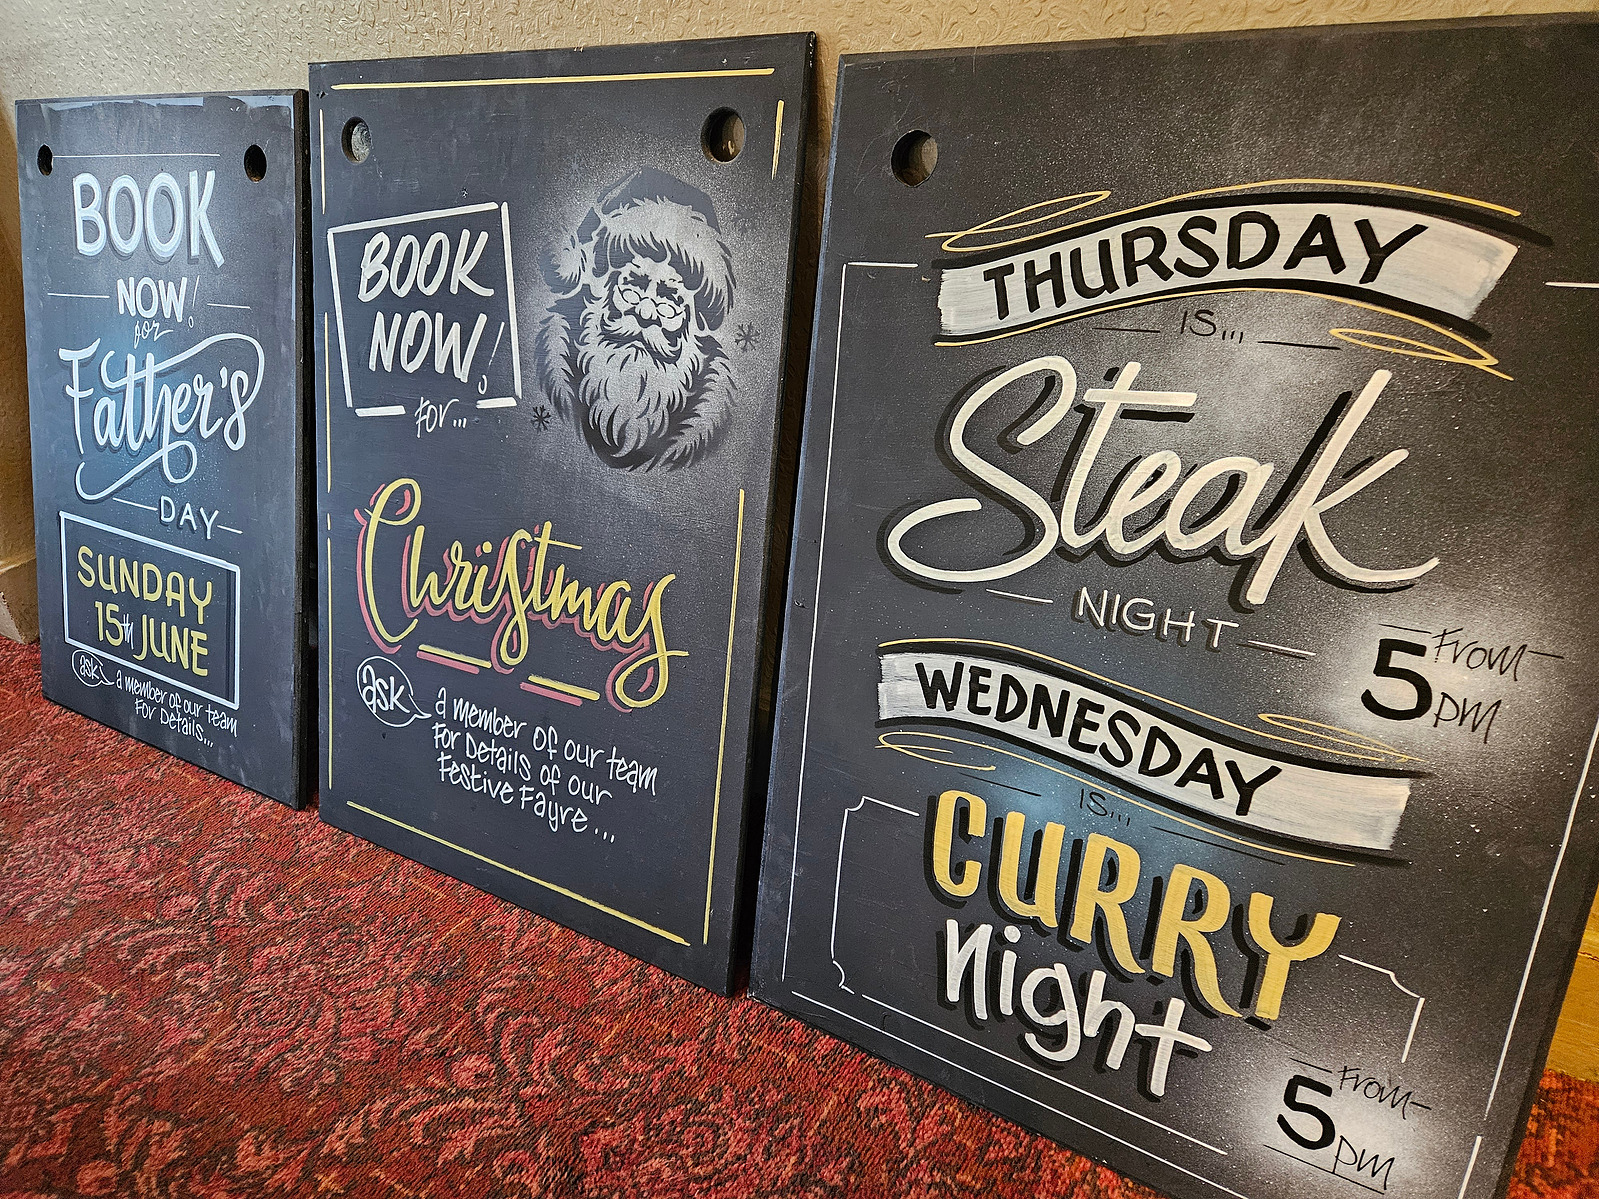 BOOK
NOW!
for
Father's
DAY
SUNDAY
15th JUNE
ask a member of our team
For Details...
BOOK
NOW!
For...
Christmas
ask a member of our team
For Details of our
Festive Fayre...
THURSDAY
IS...
Steak
NIGHT
From
5pm
WEDNESDAY
IS...
CURRY
Night
From
5pm